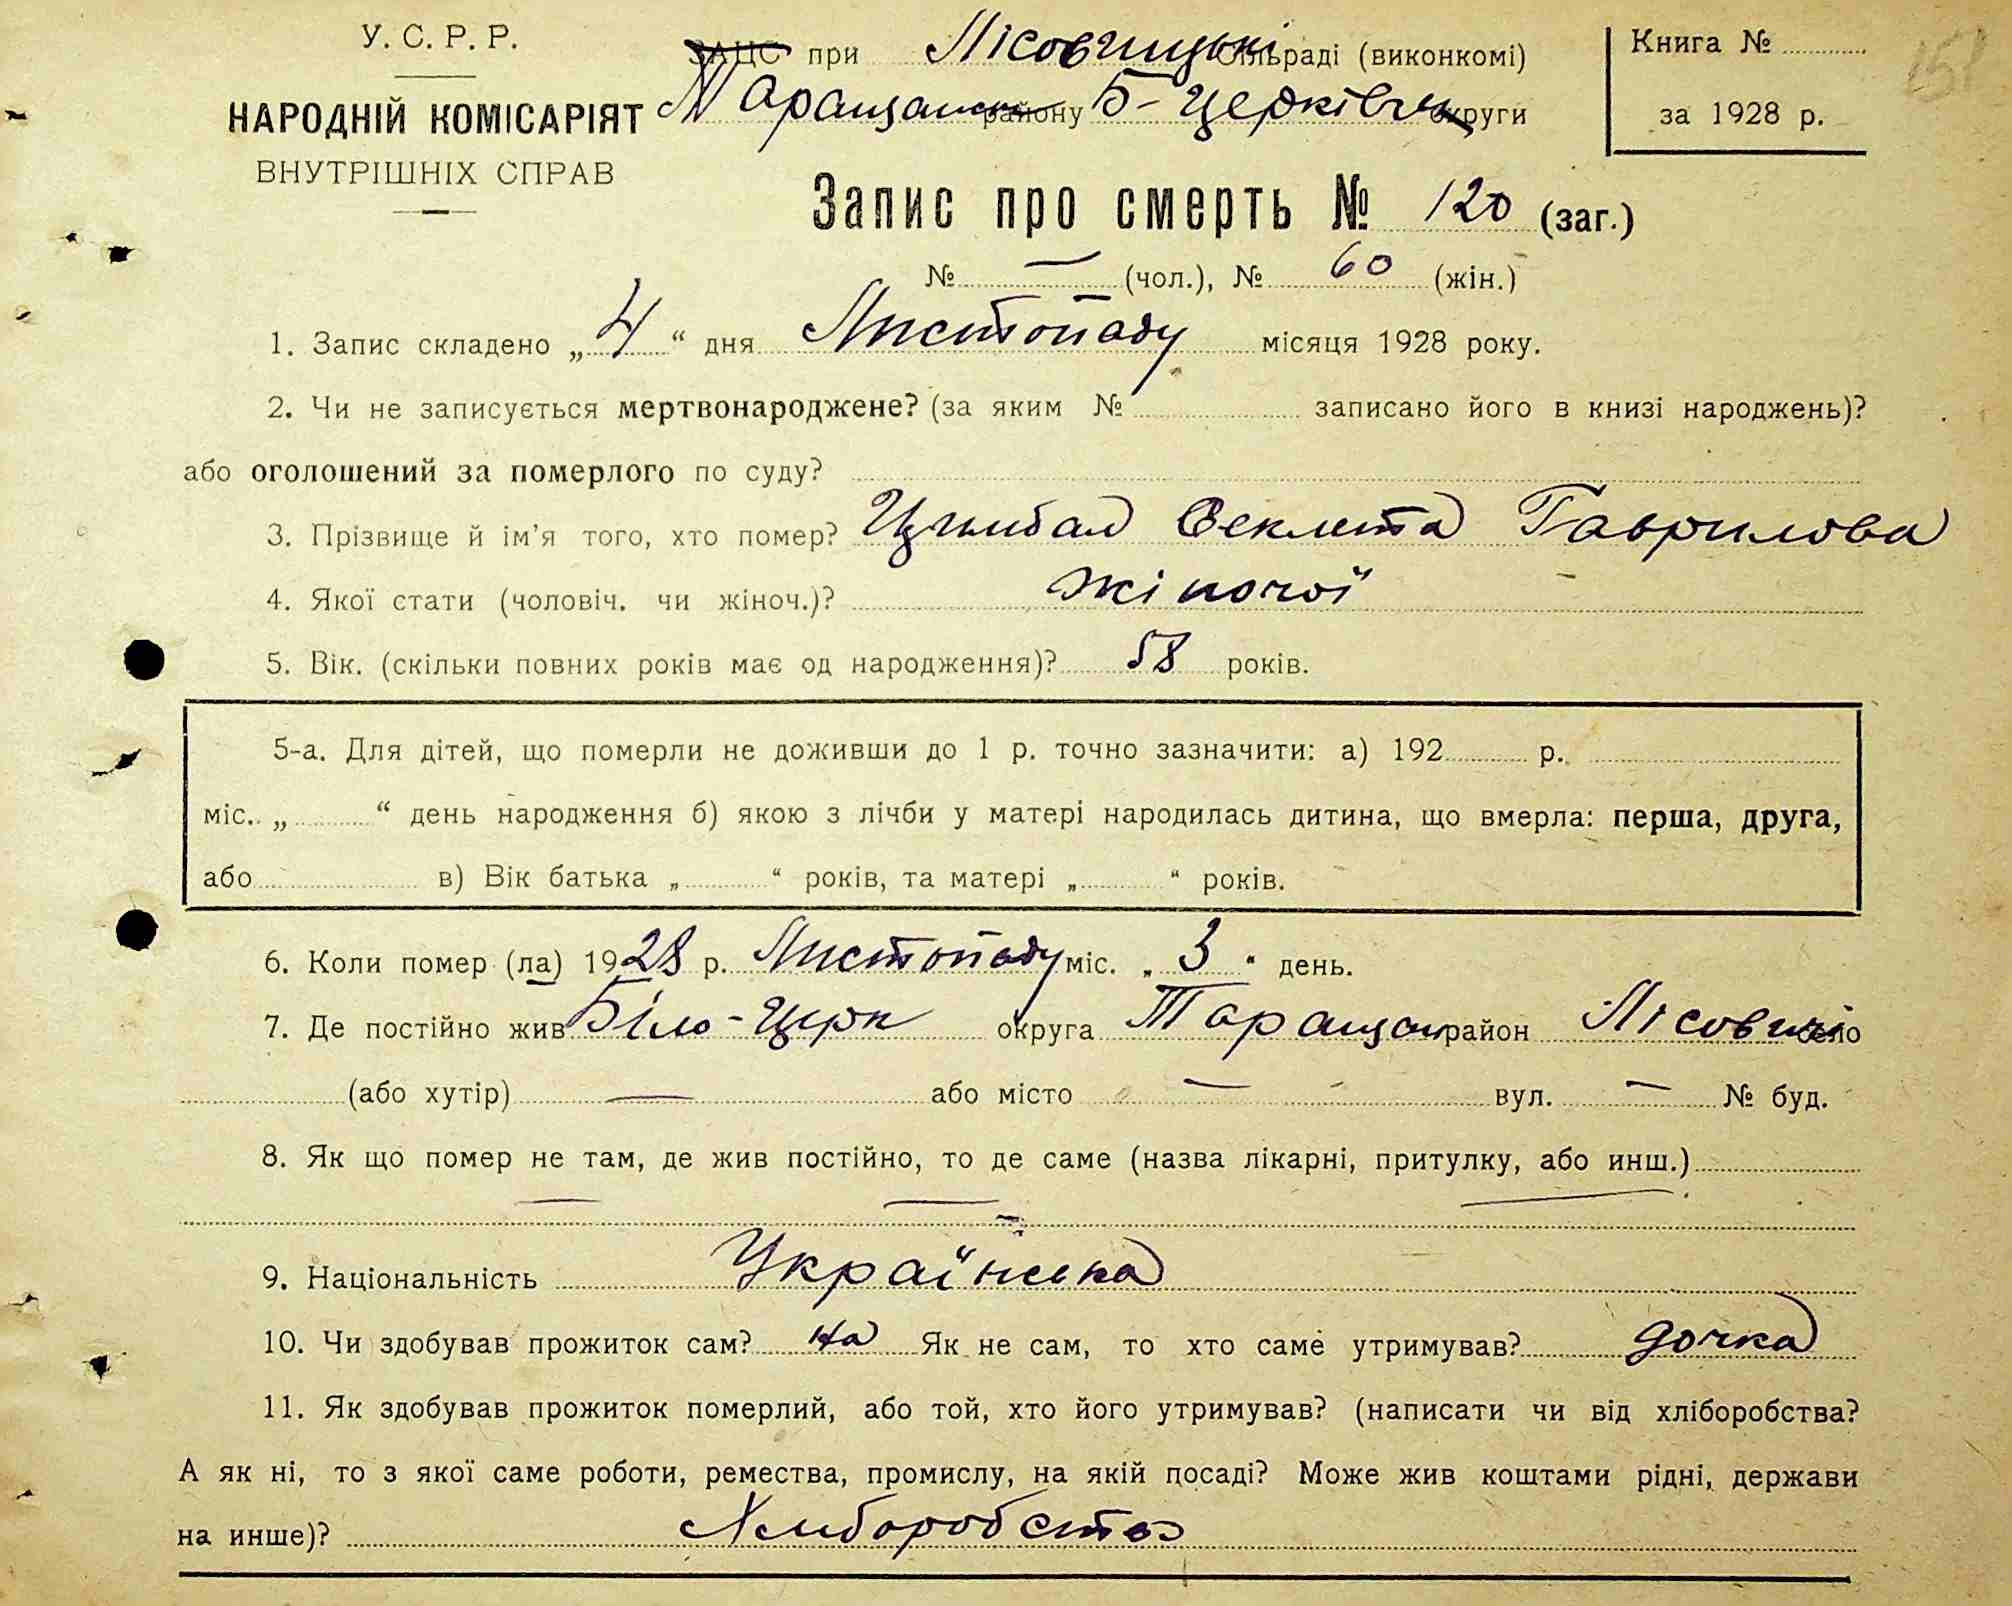 У. С. Р. Р.
НАРОДНІЙ КОМІСАРІЯТ
ВНУТРІШНІХ СПРАВ
ЗАЦС при Лісовицькі сільраді (виконкомі)
Таращанськ району Б-Церківськ округи
Книга №
за 1928 р.
Запис про смерть № 120 (заг.)
№ — (чол.), № 60 (жін.)
1. Запис складено „4“ дня Листопаду місяця 1928 року.
2. Чи не записується мертвонароджене? (за яким № записано його в книзі народжень)?
або оголошений за померлого по суду?
3. Прізвище й ім'я того, хто помер? Цимбал Секлета Гаврилова
4. Якої стати (чоловіч. чи жіноч.)? жіночої
5. Вік. (скільки повних років має од народження)? 58 років.
5-а. Для дітей, що померли не доживши до 1 р. точно зазначити: а) 192 р.
міс. „ “ день народження б) якою з лічби у матері народилась дитина, що вмерла: перша, друга,
або в) Вік батька „ “ років, та матері „ “ років.
6. Коли помер (ла) 1928 р. Листопаду міс. „3“ день.
7. Де постійно жив Біло-Церк округа Таращан район Лісовичі село
(або хутір) — або місто — вул. — № буд.
8. Як що помер не там, де жив постійно, то де саме (назва лікарні, притулку, або инш.)
— — —
9. Національність Українська
10. Чи здобував прожиток сам? на Як не сам, то хто саме утримував? дочка
11. Як здобував прожиток померлий, або той, хто його утримував? (написати чи від хліборобства?
А як ні, то з якої саме роботи, ремества, промислу, на якій посаді? Може жив коштами рідні, держави
на инше)? Хліборобство